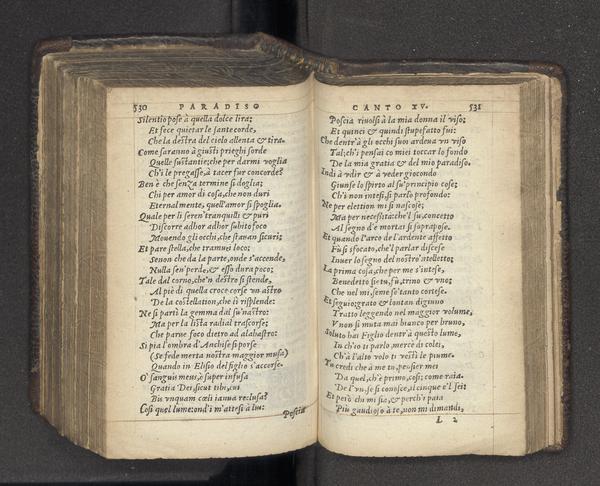 530 PARADISO
Silentio pose à quella dolce lira;
Et fece quietar le sante corde,
Che la destra del cielo allenta & tira.
Come saranno à giusti prieghi sorde
Quelle sustantie; che per darmi voglia
Ch'i le pregasse, à tacer fur concorde?
Ben è che senza termine si doglia;
Chi per amor di cosa, che non duri
Eternalmente, quell'amor si spoglia.
Quale per li seren tranquilli & puri
Discorre adhor adhor subito foco
Mouendo gli occhi, che stauan sicuri;
Et pare stella, che tramuti loco;
Senon che da la parte, onde s'accende,
Nulla sen' perde, & esso dura poco;
Tale dal corno, che'n destro si stende,
Al piè di quella croce corse vn astro
De la costellation, che ii risplende:
Ne si partì la gemma dal su' nastro:
Ma per la lista radial trascorse;
Che parue foco dietro ad alabastro:
Si pia l'ombra d'Anchise si porse
(Se fede merta nostra maggior musa)
Quando in Elisio del figlio s'accorse.
O sanguis meus, ò super infusa
Gratia Dei: sicut tibi, cui
Bis vnquam cœli ianua reclusa?
Cosi quel lume: ond'i m'attesi à lui:
Poscia
CANTO XV. 531
Poscia riuolsi à la mia donna il viso;
Et quinci & quindi stupefatto fui:
Che dentr'à gli occhi suoi ardeua vn riso
Tal; ch'i pensai co miei toccar lo fondo
De la mia gratia & del mio paradiso.
Indi à vdir & à veder giocondo
Giunse lo spirto al su' principio cose;
Ch'i non intesi, si parlo profondo:
Ne per elettion mi si nascose;
Ma per necessita: che'l su, concetto
Al segno d'e mortai si soprapose.
Et quando l'arco de l'ardente affetto
Fu si sfocato, che'l parlar discese
Inuer lo segno del nostro'ntelletto;
La prima cosa, che per me s'intese,
Benedetto sie tu, fu, trino & vno;
Che nel mi, seme se' tanto cortese.
Et seguio; grato & lontan digiuno
Tratto leggendo nel maggior volume,
V non si muta mai bianco per bruno,
Soluto hai Figlio dentr'à questo lume,
In ch'io ti parlo, merce di colei,
Ch'à l'alto volo ti vestì le piume.
Tu credi che à me tu, pensier mei
Da quel, ch'è primo, cosi; come raia.
De l'vn, se si conosce, il cinque e'l sei:
Et però chi mi sia, & perch'i paia
Più gaudioso à te, non mi dimandi,
L 2